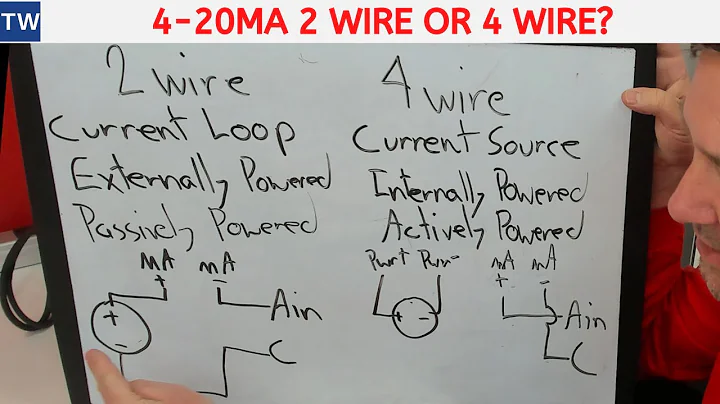 TW
4-20MA 2 WIRE OR 4 WIRE?
2 wire
Current Loop
Externally Powered
Passively Powered
mA mA
+ -
Ain
+
-
C
4 wire
Current Source
Internally Powered
Actively Powered
Pwr+ Pwr- mA mA
+ -
+ - Ain
C